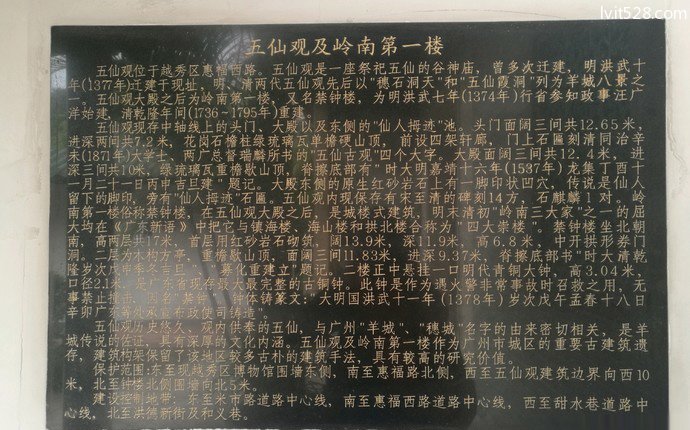 lvit528.com
五仙观及岭南第一楼
五仙观位于越秀区惠福西路。五仙观是一座祭祀五仙的谷神庙，曾多次迁建，明洪武十
年(1377年)迁建于现址，明、清两代五仙观先后以"穗石洞天"和"五仙霞洞"列为羊城八景之
一。五仙观大殿之后为岭南第一楼，又名禁钟楼，为明洪武七年(1374年)行省参知政事汪广
洋始建，清乾隆年间(1736-1795年)重建。
五仙观现存中轴线上的头门、大殿以及东侧的"仙人拇迹"池。头门面阔三间共12.65米，
进深两间共7.2米，花岗石檐柱绿琉璃瓦单檐硬山顶，前设四架轩廊，门上石匾刻清同治辛
未(1871年)大学士、两广总督瑞麟所书的"五仙古观"四个大字。大殿面阔三间共12.4米，进
深三间共10米，绿琉璃瓦重檐歇山顶，脊檩底部有"时大明嘉靖十六年(1537年)龙集丁酉十
一月二十一日丙申吉旦建"题记。大殿东侧的原生红砂岩石上有一脚印状凹穴，传说是仙人
留下的脚印，旁有"仙人拇迹"石匾。五仙观内现保存有宋至清的碑刻14方，石麒麟1对。岭
南第一楼俗称禁钟楼，在五仙观大殿之后，是城楼式建筑，明末清初"岭南三大家"之一的屈
大均在《广东新语》中把它与镇海楼、海山楼和拱北楼合称为"四大崇楼"。禁钟楼坐北朝
南，高两层共17米，首层用红砂岩石砌筑，阔13.9米，深11.9米，高6.8米，中开拱形券门
洞。二层为木构方亭，重檐歇山顶，面阔三间11.83米，进深9.37米，脊檩底部书"时大清乾
隆岁次戊申季冬吉旦 募化重建立"题记。二楼正中悬挂一口明代青铜大钟，高3.04米，
口径2.1米，是广东省现存最大最完整的古铜钟。此钟是作为遇火警非常事故时召救之用，无
事禁止撞击，因名"禁钟"，钟体铸篆文："大明国洪武十一年(1378年)岁次戊午孟春十八日
辛卯广东等处承宣布政使司铸造"。
五仙观历史悠久、观内供奉的五仙，与广州"羊城"、"穗城"名字的由来密切相关，是羊
城传说的佐证，具有深厚的文化内涵。五仙观及岭南第一楼作为广州市城区的重要古建筑遗
存，建筑构架保留了该地区较多古朴的建筑手法，具有较高的研究价值。
保护范围:东至现越秀区博物馆围墙东侧，南至惠福路北侧，西至五仙观建筑边界向西10
米，北至钟楼北侧围墙向北5米。
建设控制地带：东至米市路道路中心线，南至惠福西路道路中心线，西至甜水巷道路中
心线，北至洪德新街及和义巷。